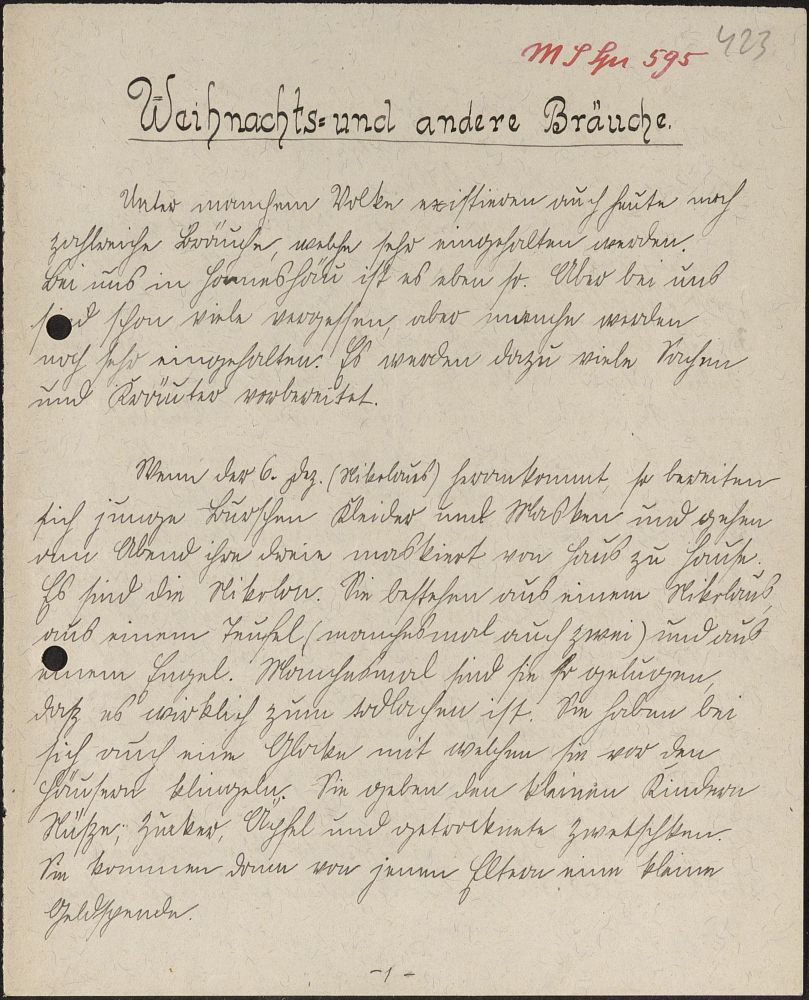 423
MS Gn 595
Weihnachts= und andere Bräuche.
Unter manchem Volke existieren auch heute noch
zahlreiche Bräuche, welche sehr eingehalten werden.
Bei uns in Honneshäu ist es eben so. Aber bei uns
sind schon viele vergessen, aber manche werden
noch sehr eingehalten. Es werden dazu viele Sachen
und Kräuter vorbereitet.
Wenn der 6. Dez. (Nikolaus) herankommt, so bereiten
sich junge Burschen Kleider und Masken und gehen
am Abend ihre dreie maskiert von Haus zu Hause.
Es sind die Nikolon. Sie bestehen aus einem Nikolaus,
aus einem Teufel (manchesmal auch zwei) und aus
einem Engel. Manchesmal sind sie so gelungen,
daß es wirklich zum todlachen ist. Sie haben bei
sich auch eine Glocke mit welchen sie vor den
Häusern klingeln. Sie geben den kleinen Kindern
Nüsze, Zucker, Äpfel und getrocknete Zwetschken.
Sie kommen dann von jenen Eltern eine kleine
Geldspende.
-1-